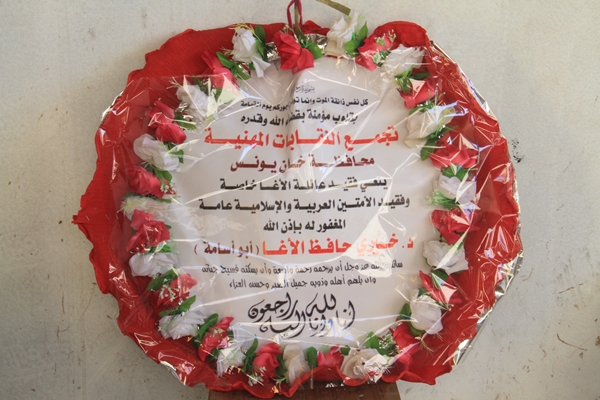 كل نفس ذائقة الموت وإنما توفون أجوركم يوم القيامة
بقلوب مؤمنة بقضاء الله وقدره
تجمع النقابات المهنية
محافظة خان يونس
ينعي فقيد عائلة الأغا خاصة
وفقيد الأمتين العربية والإسلامية عامة
المغفور له بإذن الله
د. خيري حافظ الأغا (أبو أسامة)
سائلين الله عز وجل أن يرحمه رحمة واسعة وأن يسكنه فسيح جناته
وأن يلهم أهله وذويه جميل الصبر وحسن العزاء
إنا لله وإنا إليه راجعون